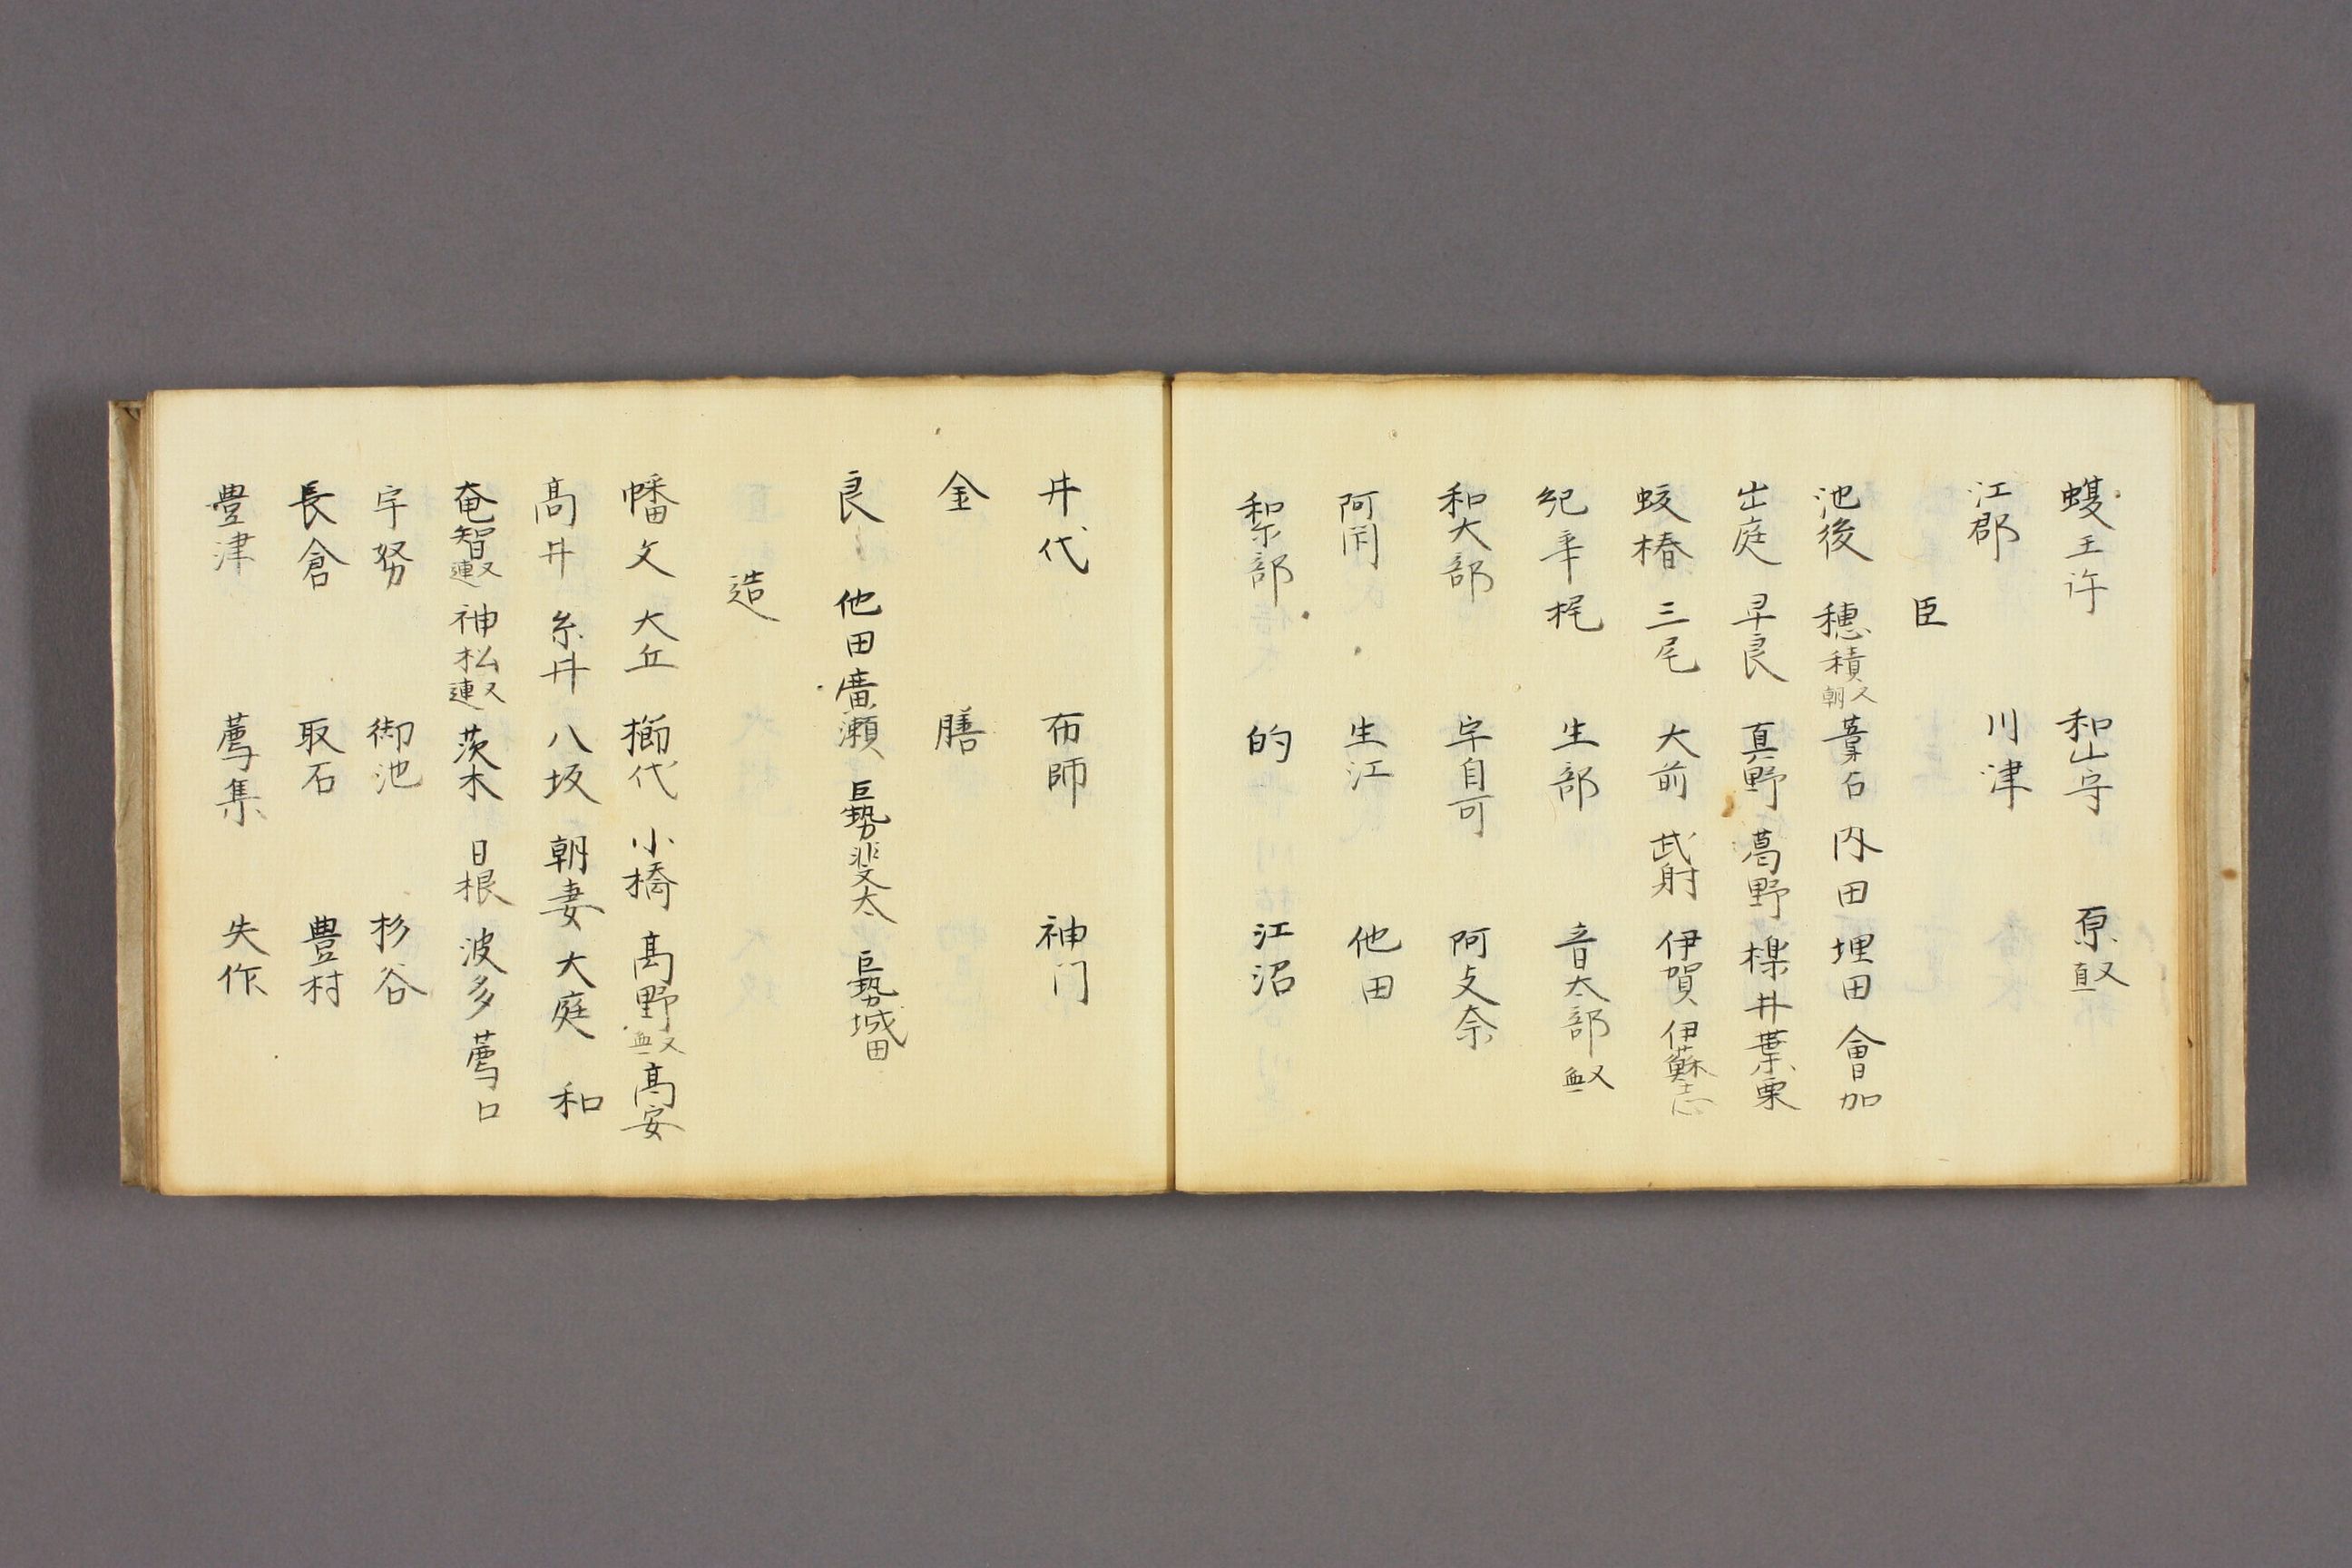 蝮王 许 和山守 原 又直
江郡 川津
臣
池後 穗積 又朝 葦占 内田 埋田 會加
出庭 早良 真野 葛野 櫟井 葉栗
蛟椿 三尾 大前 武射 伊賀 伊蘇志
紀辛梶 生部 音太部 又無
和大部 宇自可 阿支奈
阿閇 生江 他田
和尓部 的 江沼
井代 布師 神门
金 膳
良 他田廣瀬 巨勢斐太 巨勢城田
造
幡文 大丘 櫛代 小橋 髙野 又無 髙安
髙井 糸井 八坂 朝妻 大庭 和
奄智 又連 神松 又連 茨木 日根 波多 薦口
宇努 御池 杉谷
長倉 取石 豊村
豊津 薦集 失作